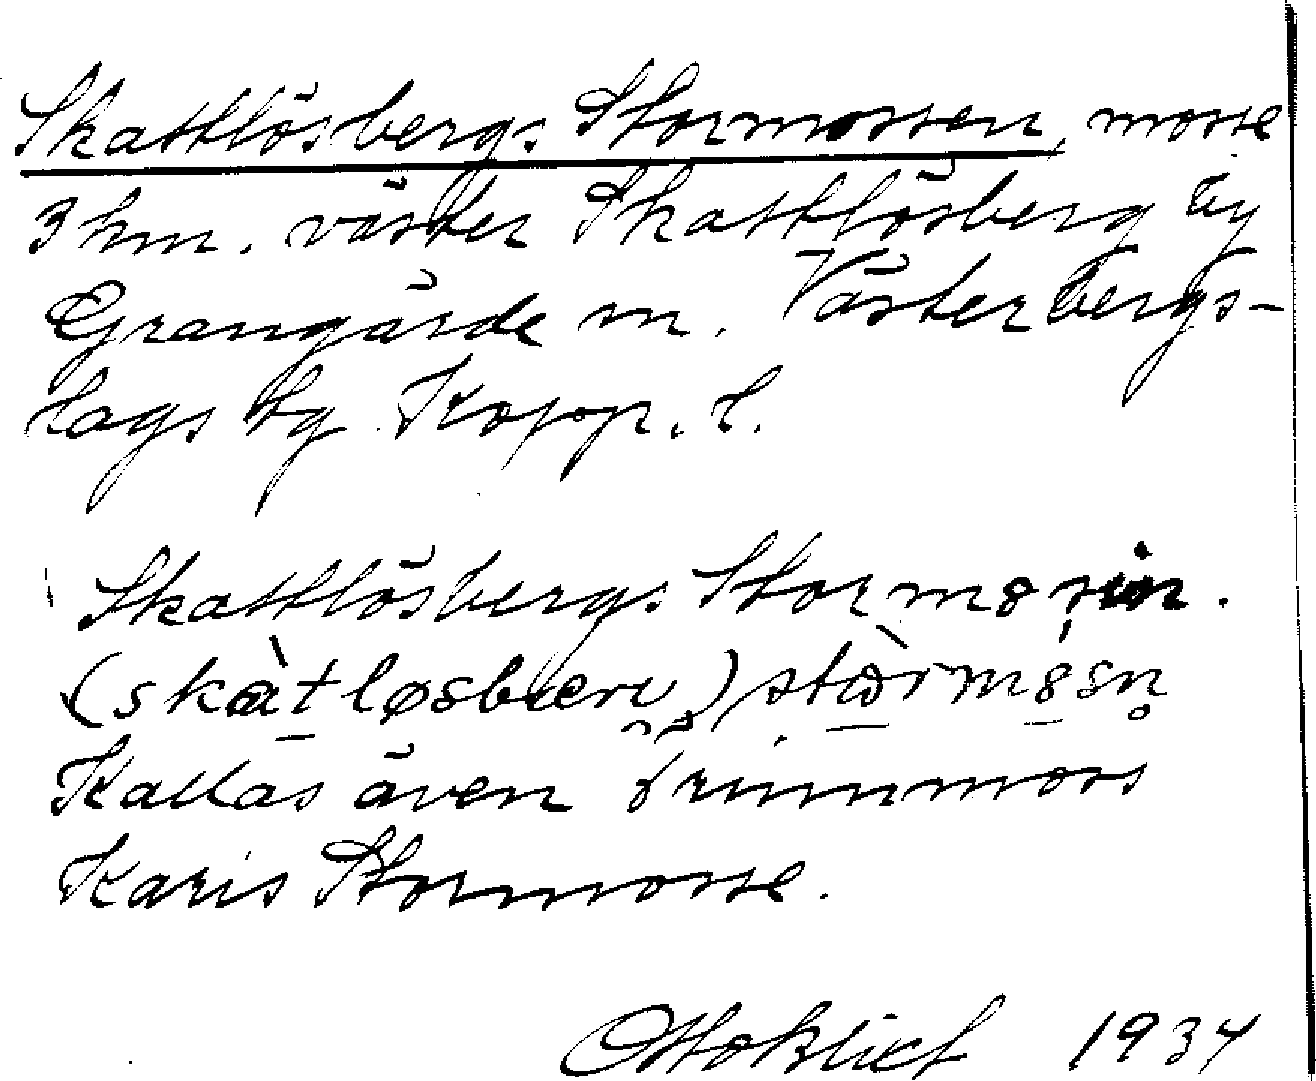 Skattlösbergs Stormossen, mosse
3 km. väster Skattlösberg by
Grangärde sn. Västerbergs-
lags tg Kopp. l.
Skattlösbergs Stormosin.
(skàtløsbærу) stòrmosn̥
Kallas även
Karis Stormosse.
1934